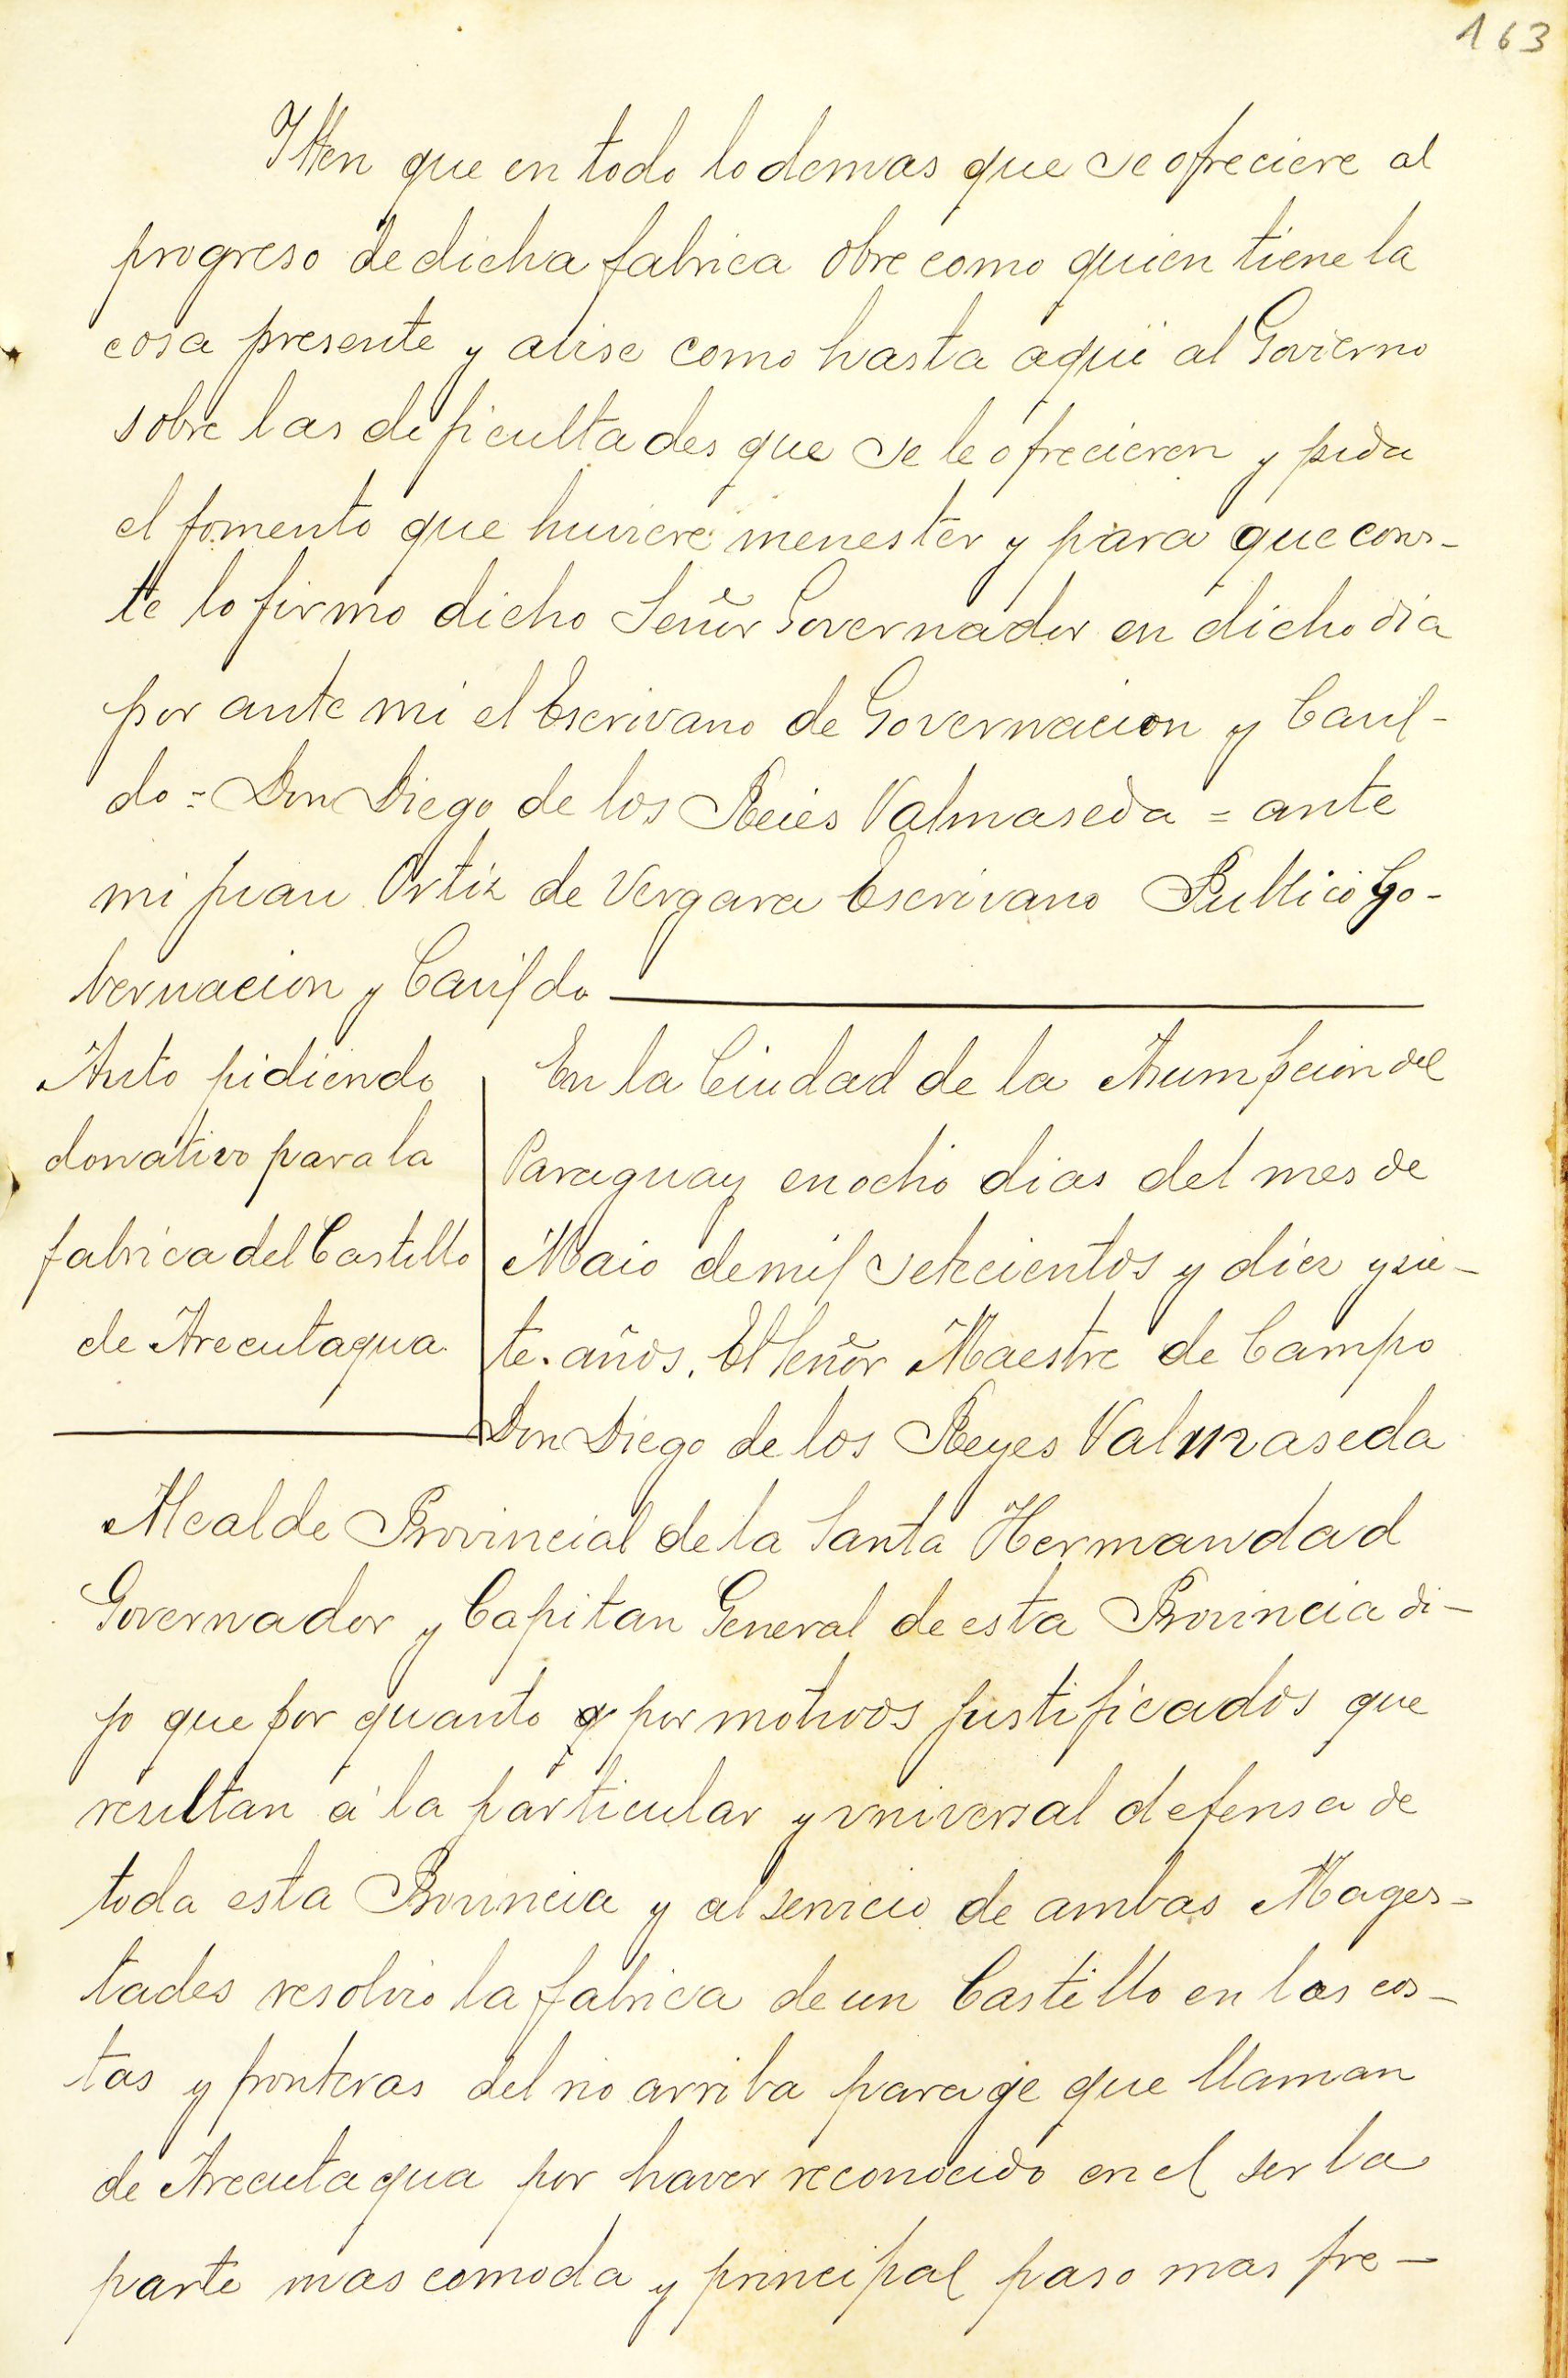 163
Itten que en todo lo demas que se ofreciere al
progreso de dicha fabrica obre como quien tiene la
cosa presente y avise como hasta aqui al Govierno
sobre las deficultades que se le ofrecieren y pida
el fomento que huviere menester y para que cons-
te lo firmo dicho Señor Governador en dicho dia
por ante mi el Escrivano de Governacion y Cavil-
do = Don Diego de los Reies Valmaseda = ante
mi Juan Ortiz de Vergara Escrivano Publico Go-
vernacion y Cavildo
Auto pidiendo
donativo para la
fabrica del Castillo
de Arecutaqua
En la Ciudad de la Asumpcion del
Paraguay en ocho dias del mes de
Maio de mil setecientos y diez y sie-
te años. El Señor Maestre de Campo
Don Diego de los Reyes Valmaseda
Alcalde Provincial de la Santa Hermandad
Governador y Capitan General de esta Provincia di-
jo que por quanto y por motivos justificados que
resultan á la particular y vniversal defensa de
toda esta Provincia y al servicio de ambas Mages-
tades resolvio la fabrica de un Castillo en las cos-
tas y fronteras del rio arriba parage que llaman
de Arecutaqua por haver reconocido en el ser la
parte mas comoda y principal paso mas fre-